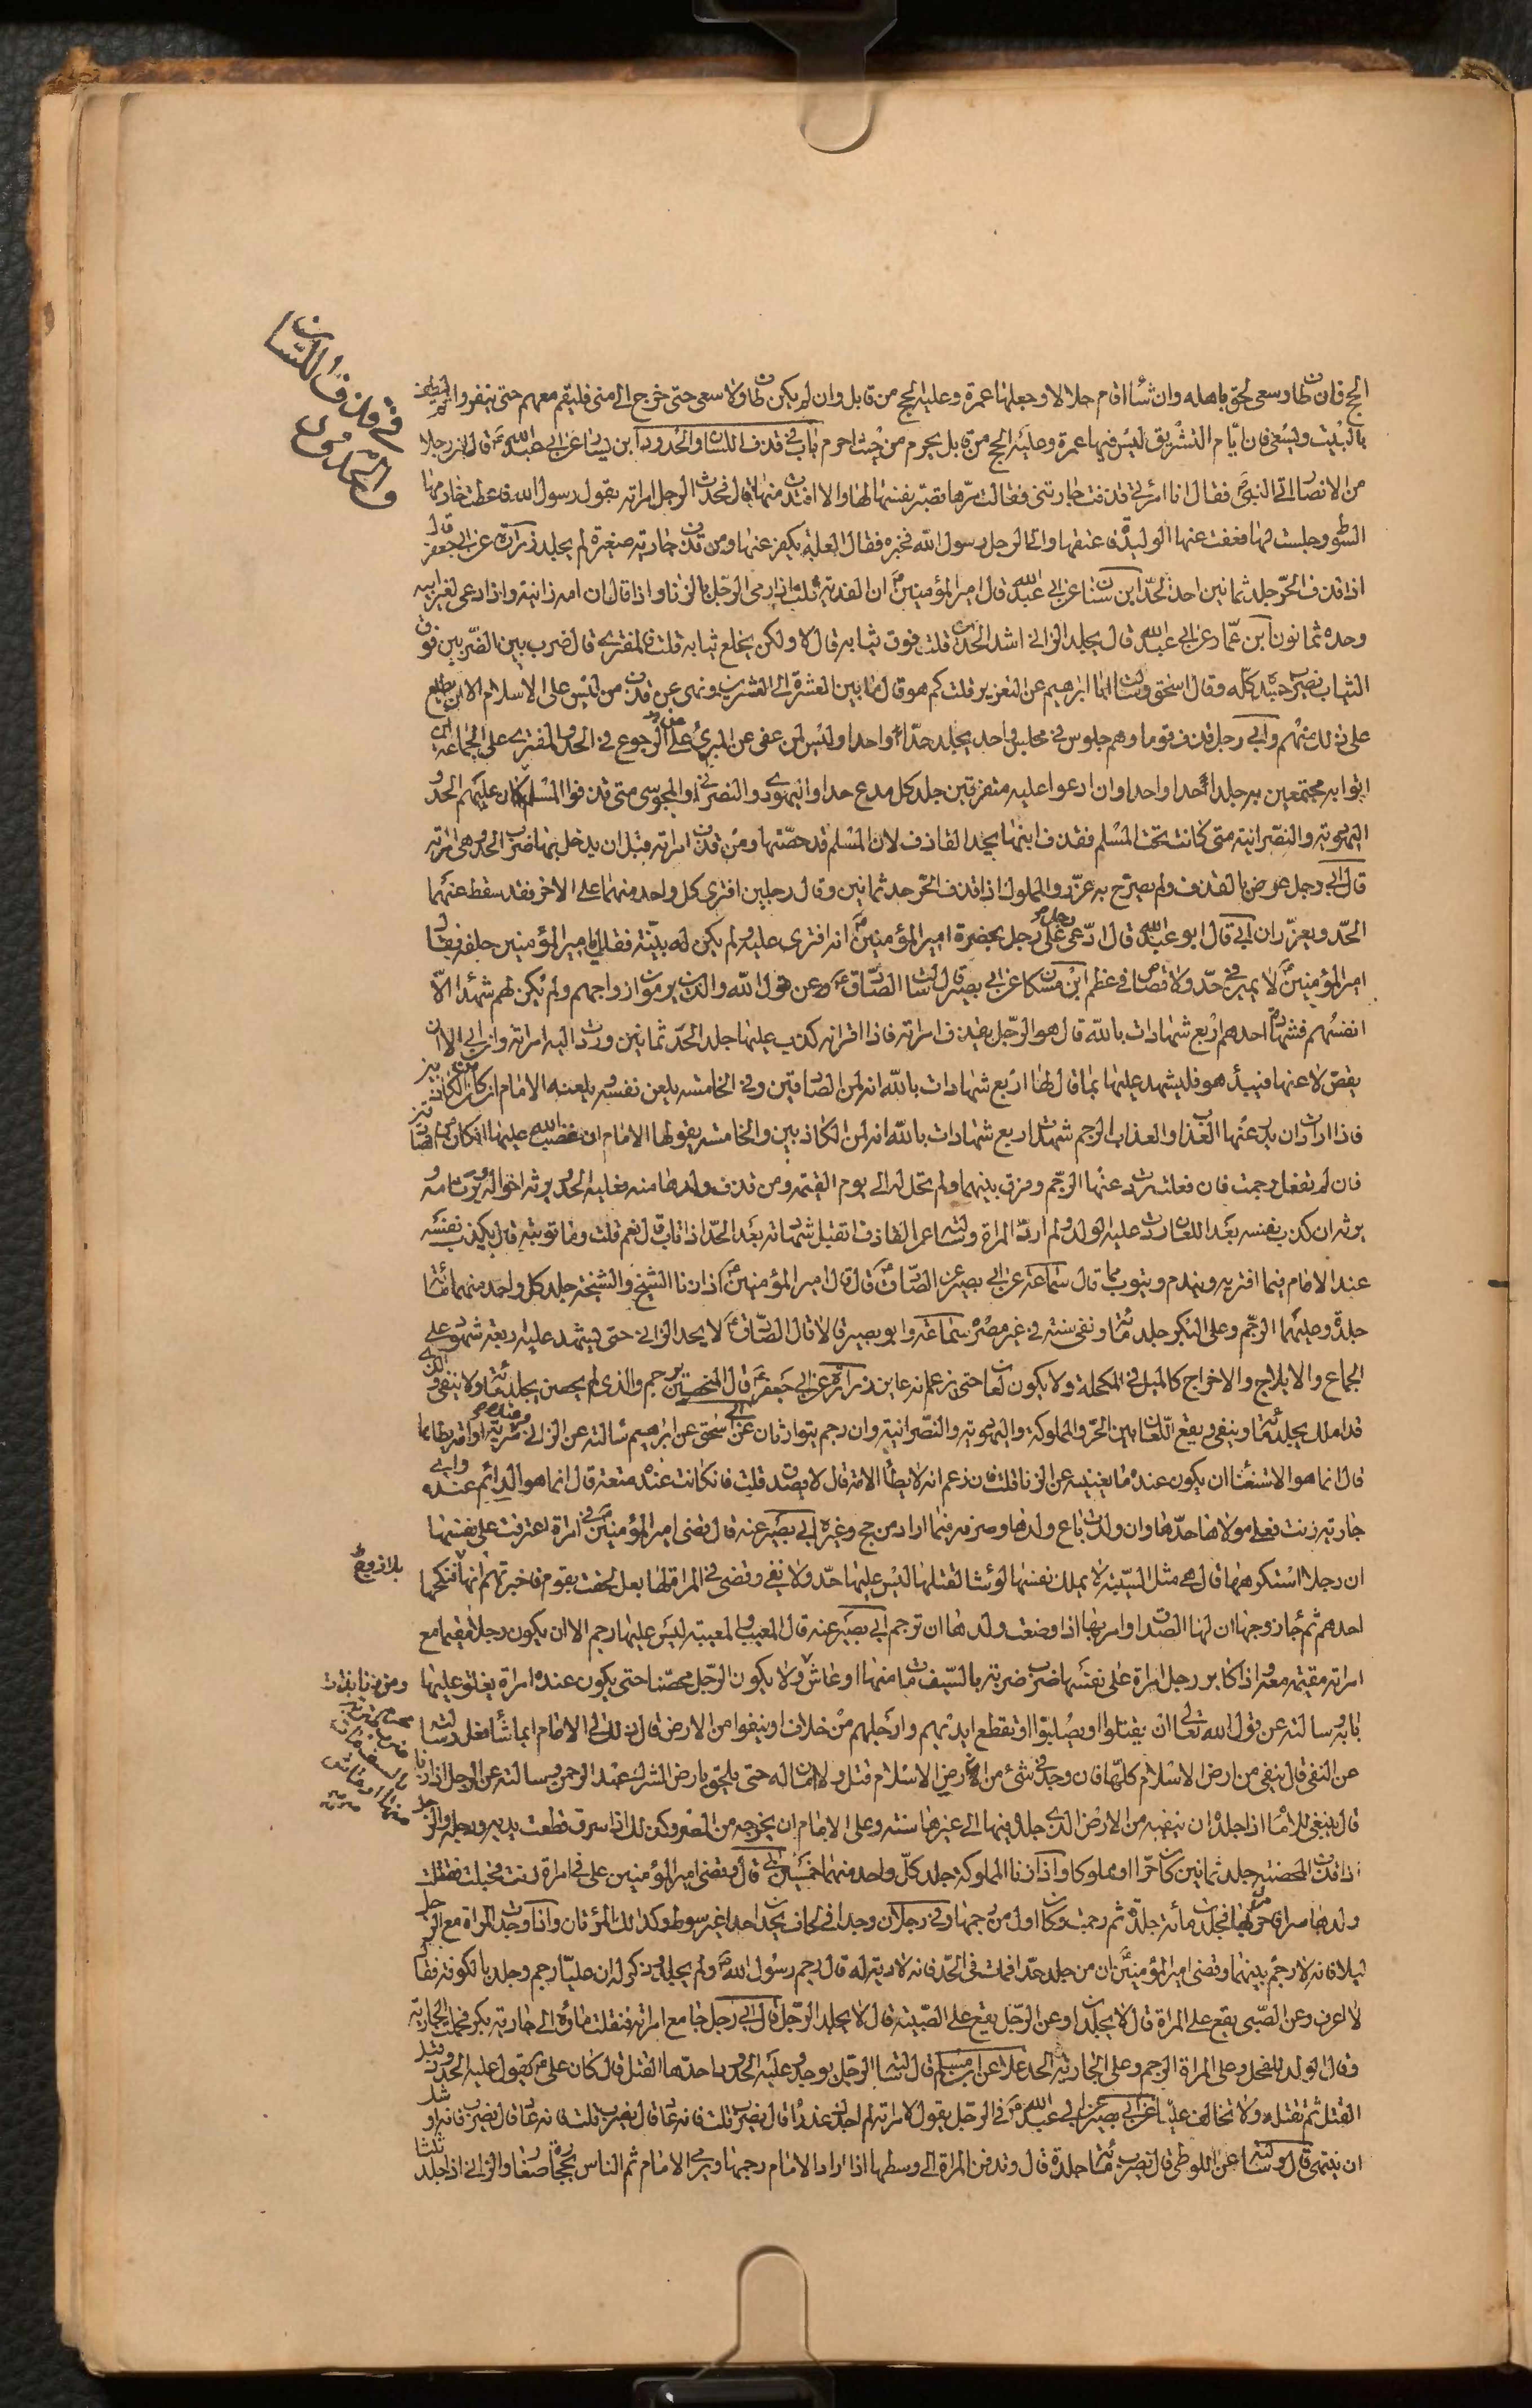 في قذف اللسان
والحدود
الحج فان طاف وسعى لحق باهله وان شاء اقام حلالا وجعلها عمرة وعليه الحج من قابل وان لم يكن طاف ولا سعى حتى خرج الى منى فليقم معهم حتى ينفروا ثم ليطف
بالبيت وليسعى فان ايام التشريق ليس فيها عمرة وعليه الحج من قابل يحرم من حيث احرم باب في قذف اللسان والحدود ابن يسار عن ابي عبد الله قال ان رجلا
من الانصار اتى النبي فقال ان امراتي قذفت جاريتي فقالت مرها تصبر نفسها لها والا افتدت منها قال فحدث الرجل امراته بقول رسول الله فاعطت خادمها
السوط وجلست لها فعفت عنها الوليدة فاعتقها واتى الرجل رسول الله فخبره فقال لعله يكفر عنها ومن قذف جارية صغيرة لم يجلد زرارة عن ابي جعفر قال
اذا قذف الحر جلد ثمانين احد الحد ابن سنان عن ابي عبد الله قال امير المؤمنين ان الفرية ثلث اذا رمى الرجل بالزنا واذا قال ان امه زانية واذا دعي لغير ابيه
وحده ثمانون ابن عمار عن ابي عبد الله قال يجلد الزاني اشد الحد قلت فوق ثيابه قال لا ولكن يخلع ثيابه قلت فالمفتري قال ضرب بين الضربين فوق
الثياب يضرب جسده كله وقال اسحق وسالت ابا ابراهيم عن التعزير قلت كم هو قال ما بين العشرة الى العشرين ونهى عن قذف من ليس على الاسلام الا ان يطلع
على ذلك منهم وابي رجل قذف قوما وهم جلوس في مجلس واحد يجلد حدا واحدا وليس لمن عفى عن المفتري عليه الرجوع في الحد والمفتري على الجماعة ان
اتوا به مجتمعين به جلد حدا واحدا وان ادعوا عليه متفرقين جلد كل مدع حدا واليهودي والنصراني والمجوسي متى قذفوا المسلم كان عليهم الحد
اليهودية والنصرانية متى كانت تحت المسلم فقذف ابنها يحد القاذف لان المسلم قد حصنها ومن قذف امراته قبل ان يدخل بها ضرب الحد وهي امراته
قال ابي رجل عرض بالقذف ولم يصرح به عزر والمملوك اذا قذف الحر حد ثمانين وقال رجلين افترى كل واحد منهما على الاخر فقد سقط عنهما
الحد ويعزران ابي قال ابو عبد الله قال ادعى رجل على رجل بحضرة امير المؤمنين انه افترى عليه ولم يكن له بينة فقال يا امير المؤمنين حلفه فقال
امير المؤمنين لا يمين في حد ولا قصاص في عظم ابن مسكان عن ابي بصير قال سالت الصادق عن قول الله والذين يرمون ازواجهم ولم يكن لهم شهداء الا
انفسهم فشهادة احدهم اربع شهادات بالله قال هو الرجل يقذف امراته فاذا اقر انه كذب عليها جلد الحد ثمانين وردت اليه امراته وان ابى الا ان
يمضي لاعنها فيبدأ هو فليشهد عليها بما قال لها اربع شهادات بالله انه لمن الصادقين وفي الخامسة يلعن نفسه ويلعنه الامام ان كان من الكاذبين
فاذا ارادت ان يدرء عنها العذاب والعذاب الرجم شهدت اربع شهادات بالله انه لمن الكاذبين والخامسة يقول لها الامام ان غضب الله عليها ان كان من الصادقين
فان لم تفعل رجمت فان فعلت درات عنها الرجم وفرق بينهما ولم تحل له الى يوم القيمة ومن قذف ولدها منه فعليه الحد ويرثه اخواله ويرث امه
يرثه ان كذب نفسه بعد اللعان رد عليه الولد ولم ارد المراة وسالته عن القاذف اتقبل شهادته بعد الحد اذا تاب قال نعم قلت وما توبته قال يكذب نفسه
عند الامام فيما افتريه ويندم ويتوب مما قال سماعة عن ابي بصير عن الصادق قال قال امير المؤمنين اذا زنا الشيخ والشيخة جلد كل واحد منهما مائة
جلدة وعليهما الرجم وعلى البكر جلد مائة ونفي سنة في غير مصره سماعة وابو بصير قالا قال الصادق لا يحد الزاني حتى يشهد عليه اربعة شهود على
الجماع والايلاج والاخراج كالميل في المكحلة ولا يكون لعان حتى يزعم انه عاين زرارة عن ابي جعفر قال المحصن يرجم والذي لم يحصن يجلد مائة ولا ينفى والذي
قد املك يجلد مائة وينفى ويقع اللعان بين الحر والمملوكة واليهودية والنصرانية وان رجم يتوارثان عن ابي اسحق عن ابراهيم سالته عن الزاني وعنده سرية او امة يطأها
قال انما هو الاستغناء ان يكون عنده ما يغنيه عن الزنا قلت فان زعم انه لا يطأ الامة قال لا يصدق قلت فان كانت عنده متعة قال انما هو الدائم عنده وابي
جارية زنت فعلى مولاها حدها وان ولدت باع ولدها وصرفه فيما اراد من حج وغيره ابي بصير عنه قال قضى امير المؤمنين في امراة اعترفت على نفسها
ان رجلا استكرهها قال هي مثل السبية لا يملك نفسها لو شاء لقتلها ليس عليها حد ولا نفي وقضى في المراة لها بعل لحقت بقوم فاخبرتهم انها فنكحها
بلا زوج
احدهم ثم جاء زوجها ان لها الصداق وامر بها اذا وضعت ولدها ان ترجم ابي بصير عنه قال المغيب والمغيبة ليس عليهما رجم الا ان يكون رجلا مقيما مع
امراته مقيمة معه واذا كابر رجل امراة على نفسها ضرب ضربة بالسيف مات منها او عاش ولا يكون الرجل محصنا حتى يكون عنده امراة يغلق عليها
ومن زنا بذات
محرم ضرب ضربة
بالسيف مات
منها او عاش
بابه وسالته عن قول الله تعالى ان يقتلوا او يصلبوا او تقطع ايديهم وارجلهم من خلاف او ينفوا من الارض قال ذلك الى الامام ايما شاء فعل وسالته
عن النفي قال ينفى من ارض الاسلام كلها فان وجد في شيء من ارض الاسلام قتل ولا امان له حتى يلحق بارض الشرك عبد الرحمن وسالته عن الرجل اذا زنا
قال ينبغي للامام اذا جلد ان ينفيه من الارض الذي جلد فيها الى غيرها سنة وعلى الامام ان يخرجه من المصر وكذلك اذا سرق قطعت يده ورجله والرجل
اذا قذف المحصنة جلد ثمانين كان حرا او مملوكا واذا زنا المملوكة جلد كل واحد منهما خمسين ابي قال وقضى امير المؤمنين علي في امراة زنت فحبلت فقتلت
ولدها سرا فامر بها فجلدت مائة جلدة ثم رجمت وكان اول من رجمها وفي رجلان وجدا في لحاف يحد احدا غير سوط وكذلك المرأتان واذا وجدت المراة مع الرجل
ليلا فانه لا رجم بينهما وقضى امير المؤمنين ان من جلد حدا فمات في الحد فانه لا دية له قال رجم رسول الله ولم يجلد وذكر له ان عليا رجم وجلد بالكوفة فقال
لا اعرف وعن الصبي يقع على المراة قال لا يجلدان وعن الرجل يقع على الصبية قال لا يجلد الرجل قال ابي رجل جامع امراته فنقلت ماؤه الى جارية بكر فحملت الجارية
وقال الولد للفحل وعلى المراة الرجم وعلى الجارية الحد علا عن ابن مسلم قال سالته الرجل يوجد وعليه الحدود احدها القتل قال كان علي يقول عليه الحد وبعد
القتل ثم يقتله ولا تخالف عليا عن ابي بصير عن ابي عبد الله في الرجل يقول لامراته لم اجدك عذراء قال يضرب قلت فانه عاد قال يضرب قلت فانه عاد قال يضرب فانه اوشك
ان ينتهي قال وسالته عن اللوطي قال يضرب مائة جلدة قال وتدفن المراة الى وسطها اذا اراد الامام رجمها ويرمي الامام ثم الناس بحجارة صغار والزاني اذا جلد ثلثا